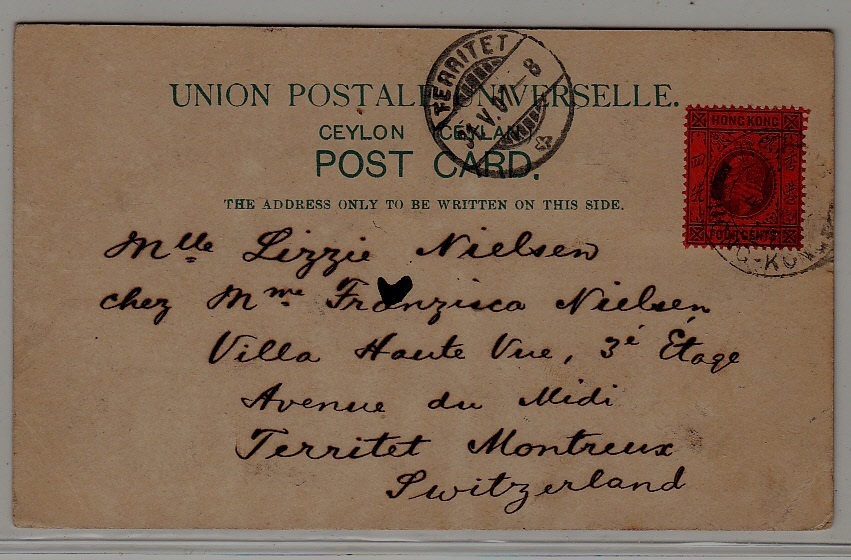 UNION POSTALE UNIVERSELLE.
CEYLON (CEYLAN)
POST CARD.
THE ADDRESS ONLY TO BE WRITTEN ON THIS SIDE.
TERRITET
31.V.07.-8
HONG KONG
FOUR CENTS
HONG-KONG
Mlle Lizzie Nielsen
chez Mme Franzisca Nielsen
Villa Haute Vue, 3è Étage
Avenue du Midi
Territet Montreux
Switzerland